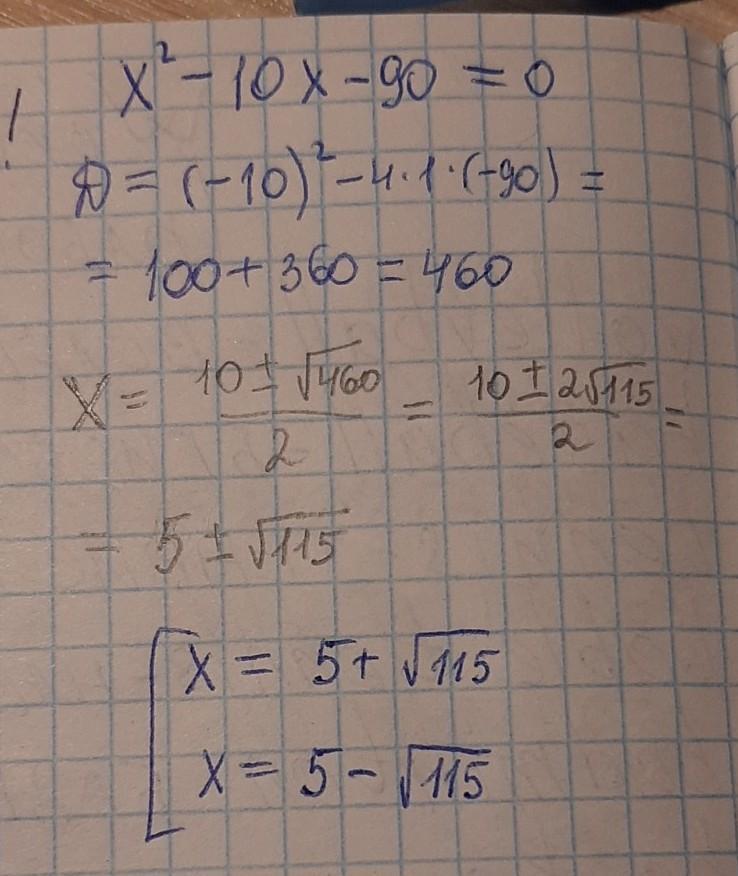 !
x² - 10x - 90 = 0
D = (-10)² - 4·1·(-90) =
= 100 + 360 = 460
x = (10 ± √460)/2 = (10 ± 2√115)/2 =
= 5 ± √115
[ x = 5 + √115
x = 5 - √115